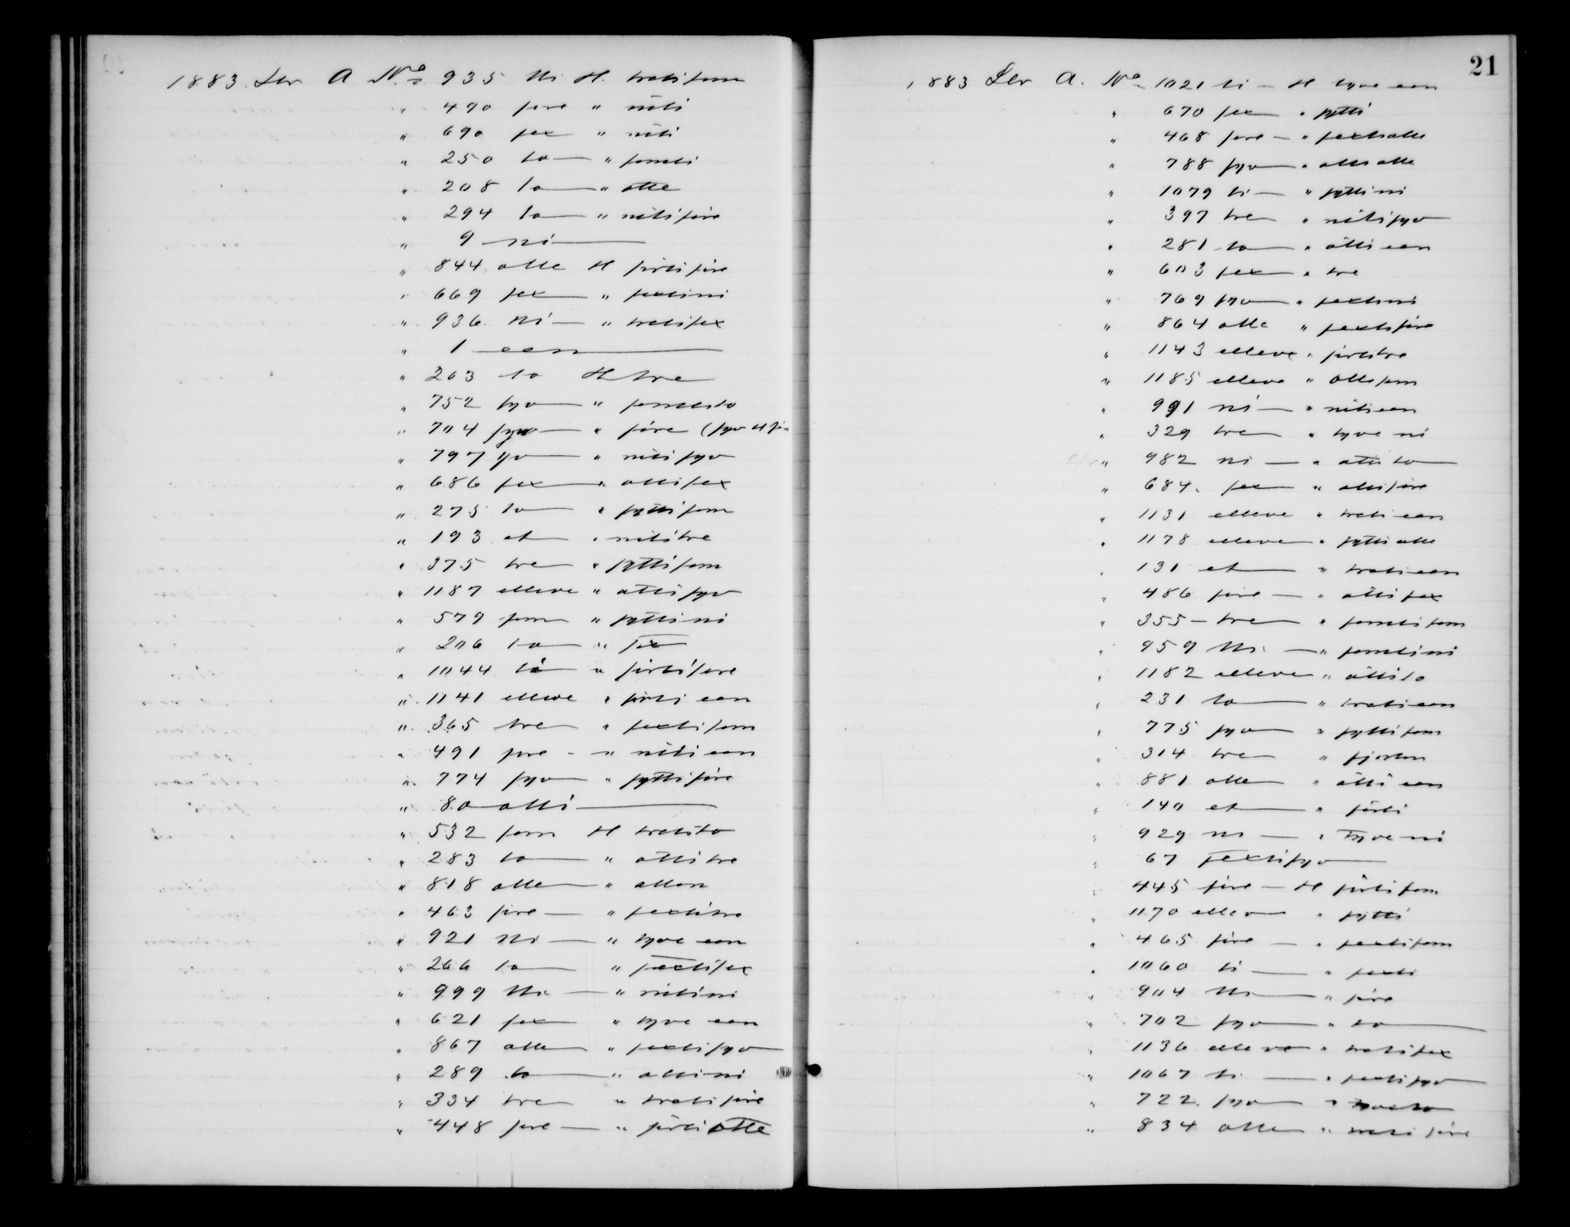 1883 Ler A No 935 Ni H tretifem
" 490 fire " niti
" 690 sex " niti
" 250 to — " femti
" 208 to — " otte
" 294 to — " nitifire
" 9 ni —
" 844 otte H firtifire
" 669 sex — " sextini
" 936 Ni — " tretisex
" 1 een —
" 203 to H tre
" 752 syv — " femtito
" 704 syv — " fire (syv H fire
" 797 syv — " nitisyv
" 686 sex — " ottisex
" 275 to — " syttifem
" 193 et — " nititre
" 375 tre — " syttifem
" 1187 elleve " ottisyv
" 579 fem " syttini
" 206 to — " sex
" 1044 ti — " firtifire
" 1141 elleve " firti een
" 365 tre — " sextifem
" 491 fire - " niti een
" 774 syv — " syttifire
" 80 otti —
" 532 fem H tretito
" 283 to — " ottitre
" 818 otte — " atten
" 463 fire — " sextitre
" 921 Ni — " tyve een
" 266 to — " sextisex
" 999 Ni — " nitini
" 621 sex — " tyve een
" 867 otte — " sextisyv
" 289 to — " ottini
" 334 tre — " tretifire
" 448 fire — " firtiotte
21
1883 Ler A. No 1021 ti — H tyve een
" 670 sex — " sytti
" 468 fire — " sextiotte
" 788 syv — " ottiotte
" 1079 ti — " syttini
" 397 tre — " nitisyv
" 281 to — " otti een
" 603 sex — " tre
" 769 syv — " sextini
" 864 otte " sextifire
" 1143 elleve " firtitre
" 1185 elleve " ottifem
" 991 ni — " niti een
" 329 tre — " tyve ni
" 982 ni — " ottito —
" 684. sex — " ottifire
" 1131 elleve " treti een
" 1178 elleve " syttiotte
" 131 et — " treti een
" 486 fire — " ottisex
" 355 — tre — " femtifem
" 959 Ni — " femtini
" 1182 elleve " ottito
" 231 to — " treti een
" 775 syv — " syttifem
" 314 tre — " fjorten
" 881 otte — " otti een
" 140 et — " firti
" 929 ni — " Tyve ni
" 67 sextisyv —
" 445 fire — H firtifem
" 1170 elleve — " sytti
" 465 fire — " sextifem
" 1060 ti — " sexti
" 904 Ni — " fire
" 702 syv — " to —
" 1136 elleve " tretisex
" 1067 ti — " sextisyv
" 722 syv — " tyveto
" 834 otte — " tretifire